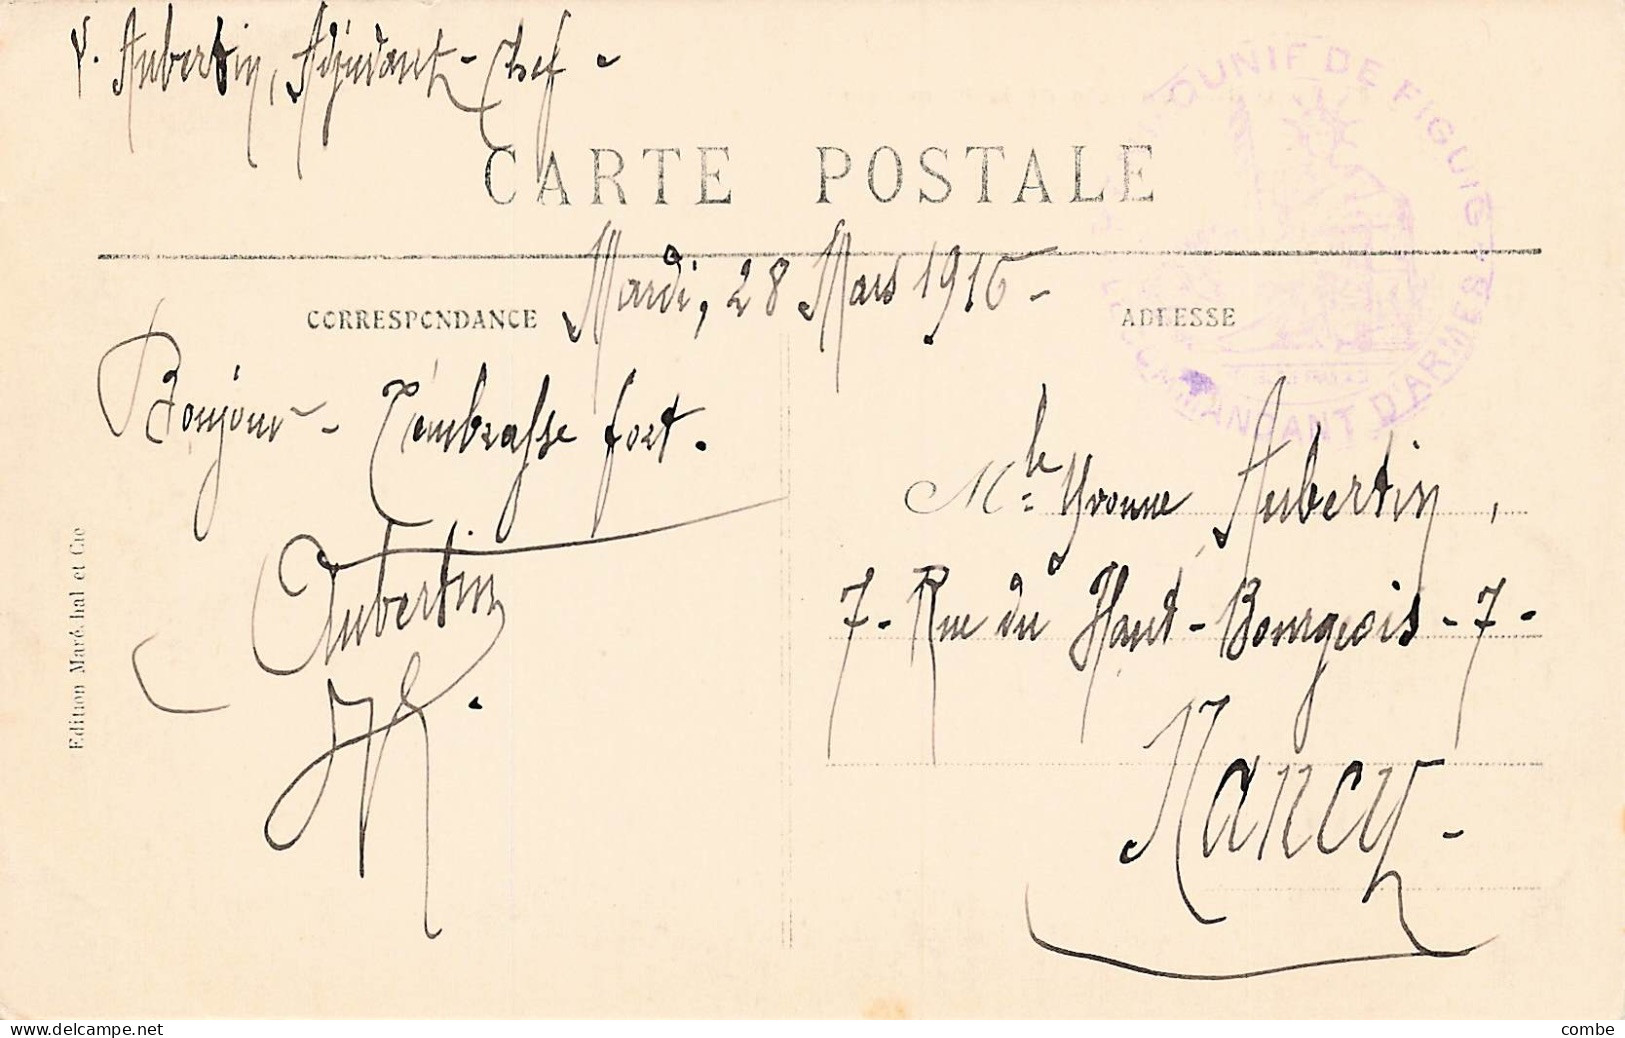 Y. Aubertin, Adjudant-Chef -
CARTE POSTALE
OUNIF DE FIGUIG
LE COMMANDANT D'ARMES
Mardi, 28 Mars 1916 -
CORRESPONDANCE
ADRESSE
Bonjour - T'embrasse fort.
Aubertin
Mlle Yvonne Aubertin,
7 - Rue du Haut-Bourgeois - 7 -
Nancy -
Edition Maréchal et Cie
delcampe.net
combe